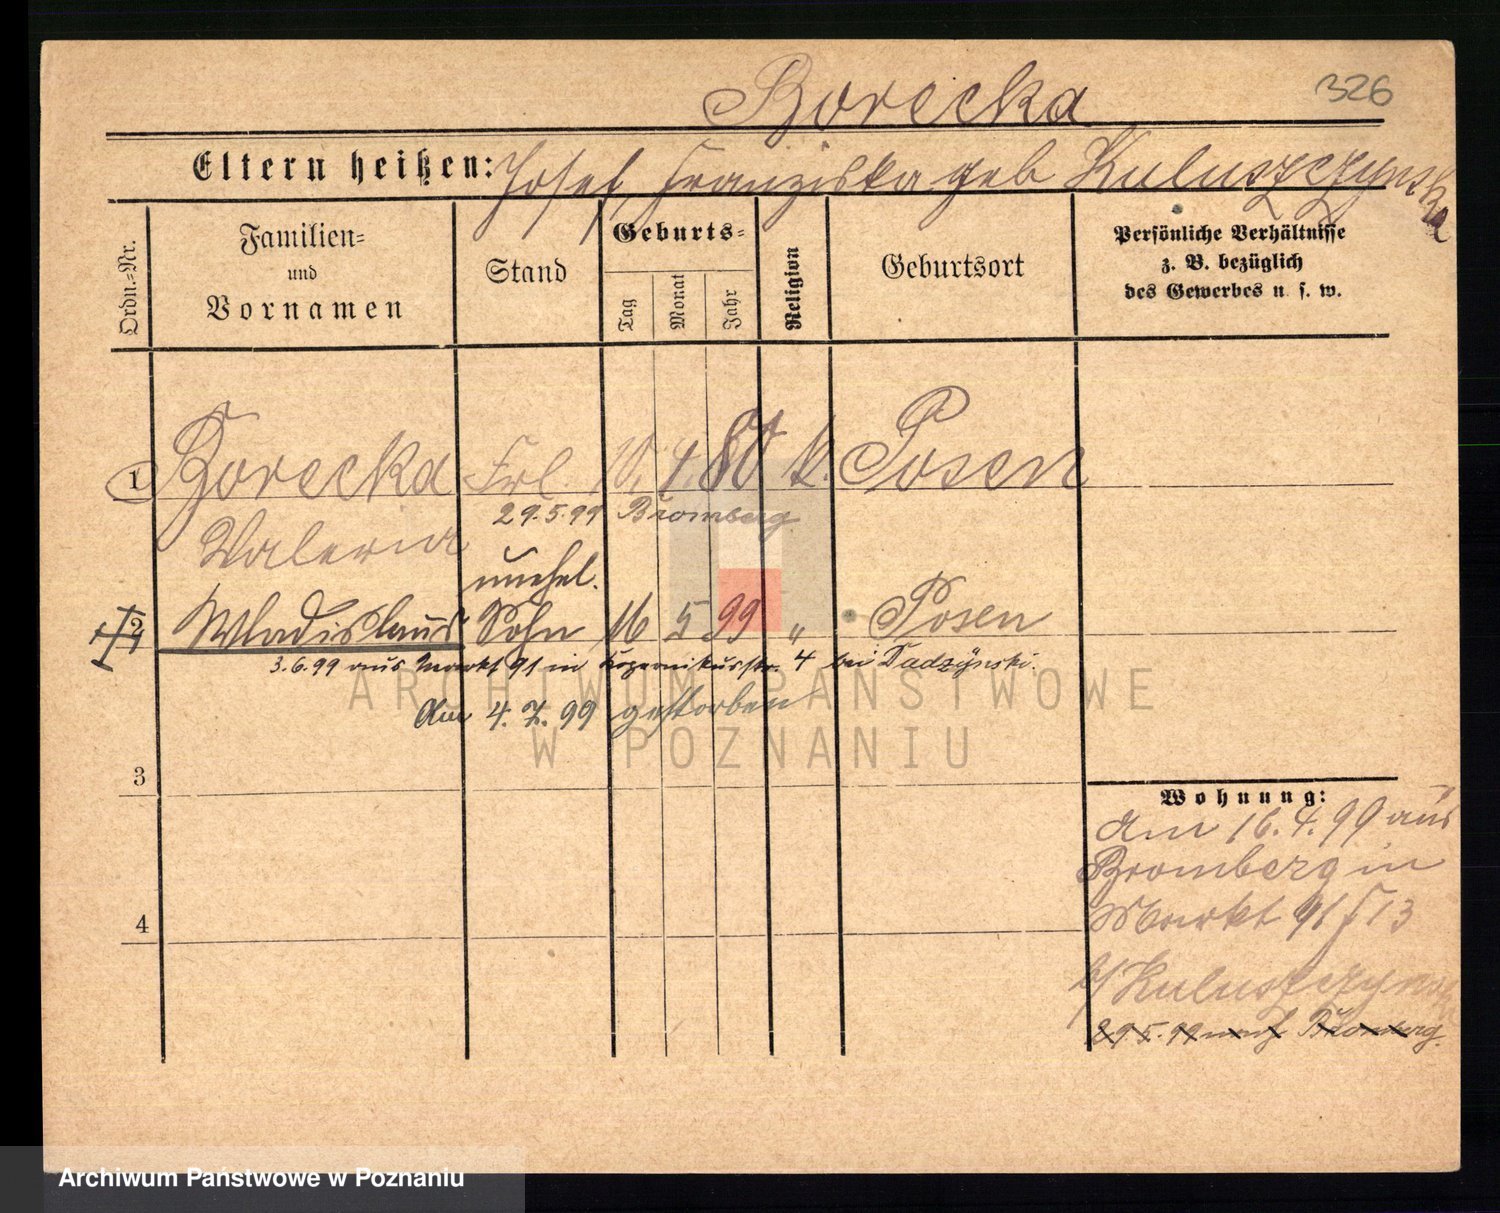 Borecka
326
Eltern heißen: Josef, Franziska geb Kuluszczynska
Ordn.-Nr.
Familien-
und
Vornamen
Stand
Geburts-
Tag
Monat
Jahr
Religion
Geburtsort
Persönliche Verhältnisse
z. B. bezüglich
des Gewerbes u. s. w.
1 Borecka Frl. 10. 4. 80 k. Posen
29.5.99 Bromberg
Valeria
unehel.
2 Wladislaus Sohn 16 5 99 " Posen
3.6.99 aus Markt 91 in Kopernikusstr. 4 bei Tadzynski.
Am 4. 7. 99 gestorben
ARCHIWUM PAŃSTWOWE
W POZNANIU
3
4
Wohnung:
Am 16.4.99 aus
Bromberg in
Markt 91 I 13
b/ Kuluszczynski
29.5.99 nach Bromberg.
Archiwum Państwowe w Poznaniu